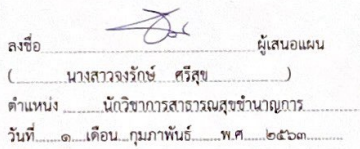 ลงชื่อ ผู้เสนอแผน
( นางสาวจงรักษ์ ศรีสุข )
ตำแหน่ง นักวิชาการสาธารณสุขชำนาญการ
วันที่ ๑ เดือน กุมภาพันธ์ พ.ศ ๒๕๖๓